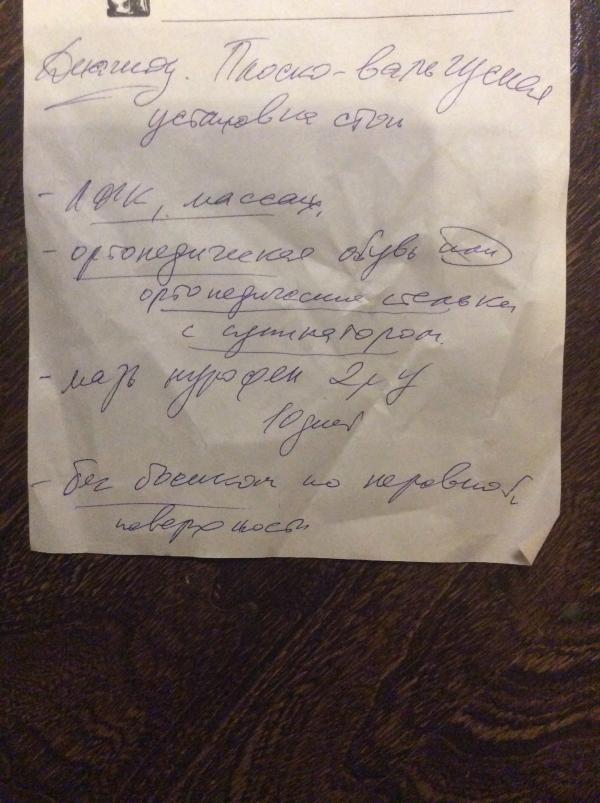 Диагноз. Плоско-вальгусная
установка стоп
- ЛФК, массаж,
- ортопедическая обувь или
ортопедические стельки
с супинатором.
- мазь нурофен 2 р у
10 дней
- бег босиком по неровной
поверхности